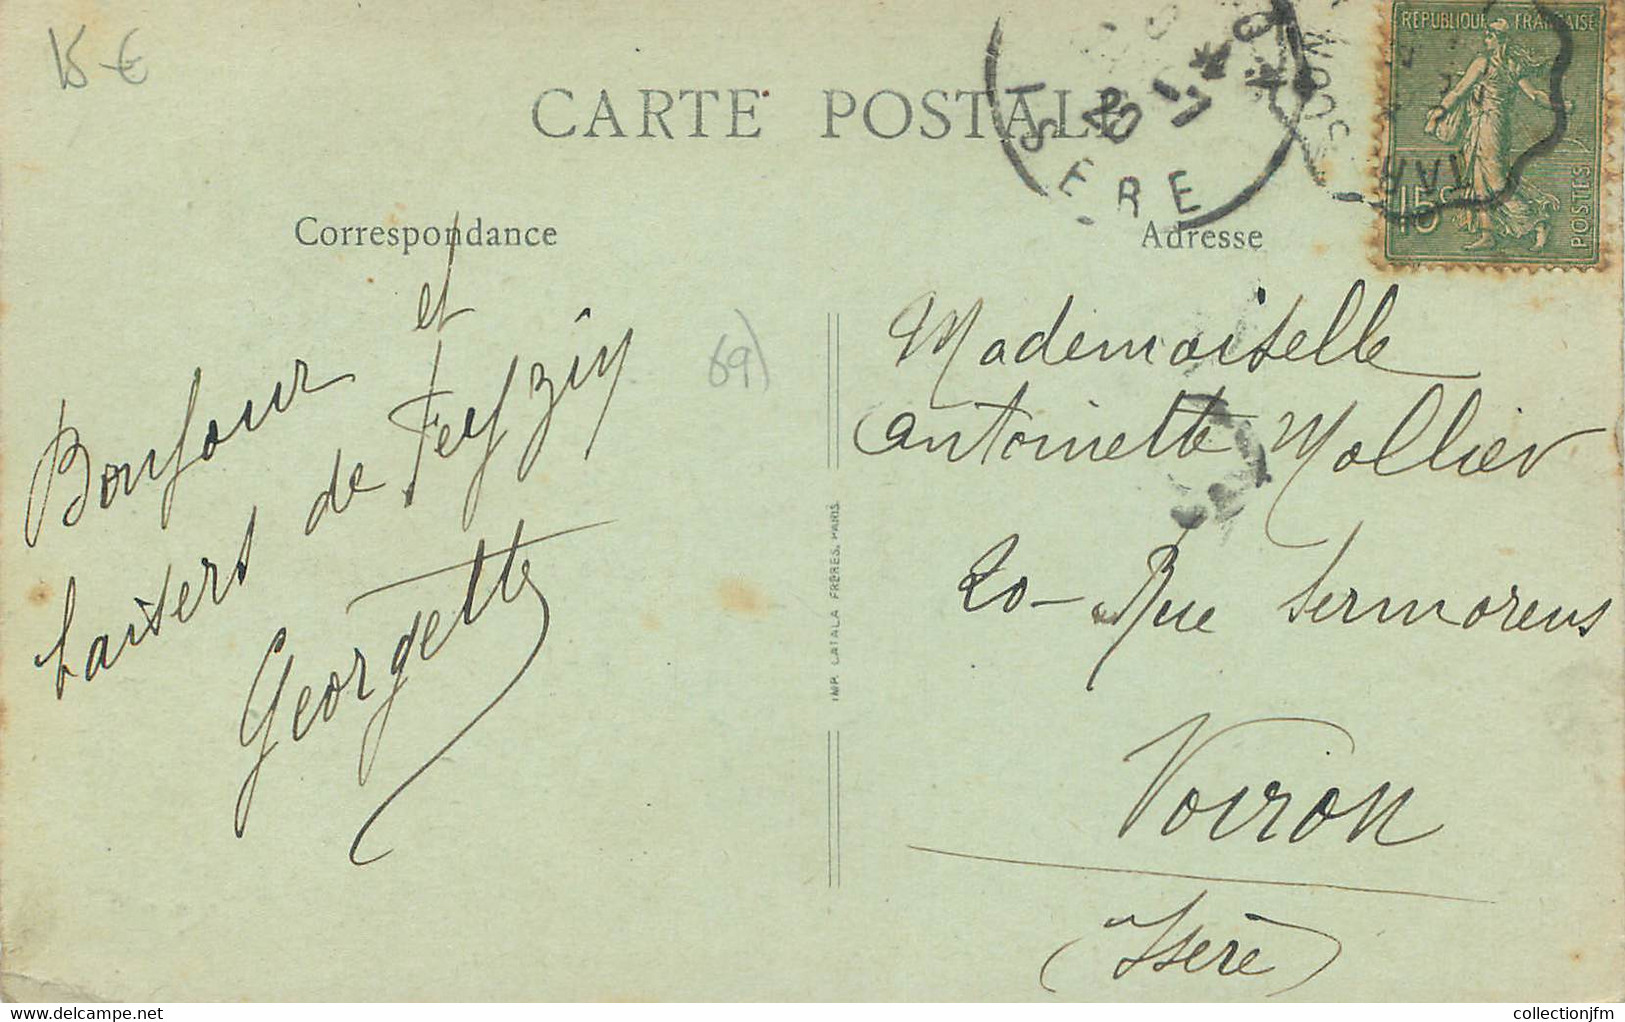 15 €
CARTE POSTALE
ISERE
20 - 1
17
RÉPUBLIQUE FRANÇAISE
15c
POSTES
Correspondance
Adresse
Bonjour et
baisers de Feyzin
Georgette
69)
IMP. CATALA FRÈRES, PARIS
Mademoiselle
Antoinette Mollier
20 - Rue Sermorens
Voiron
(Isère)
www.delcampe.net
collectionjfm